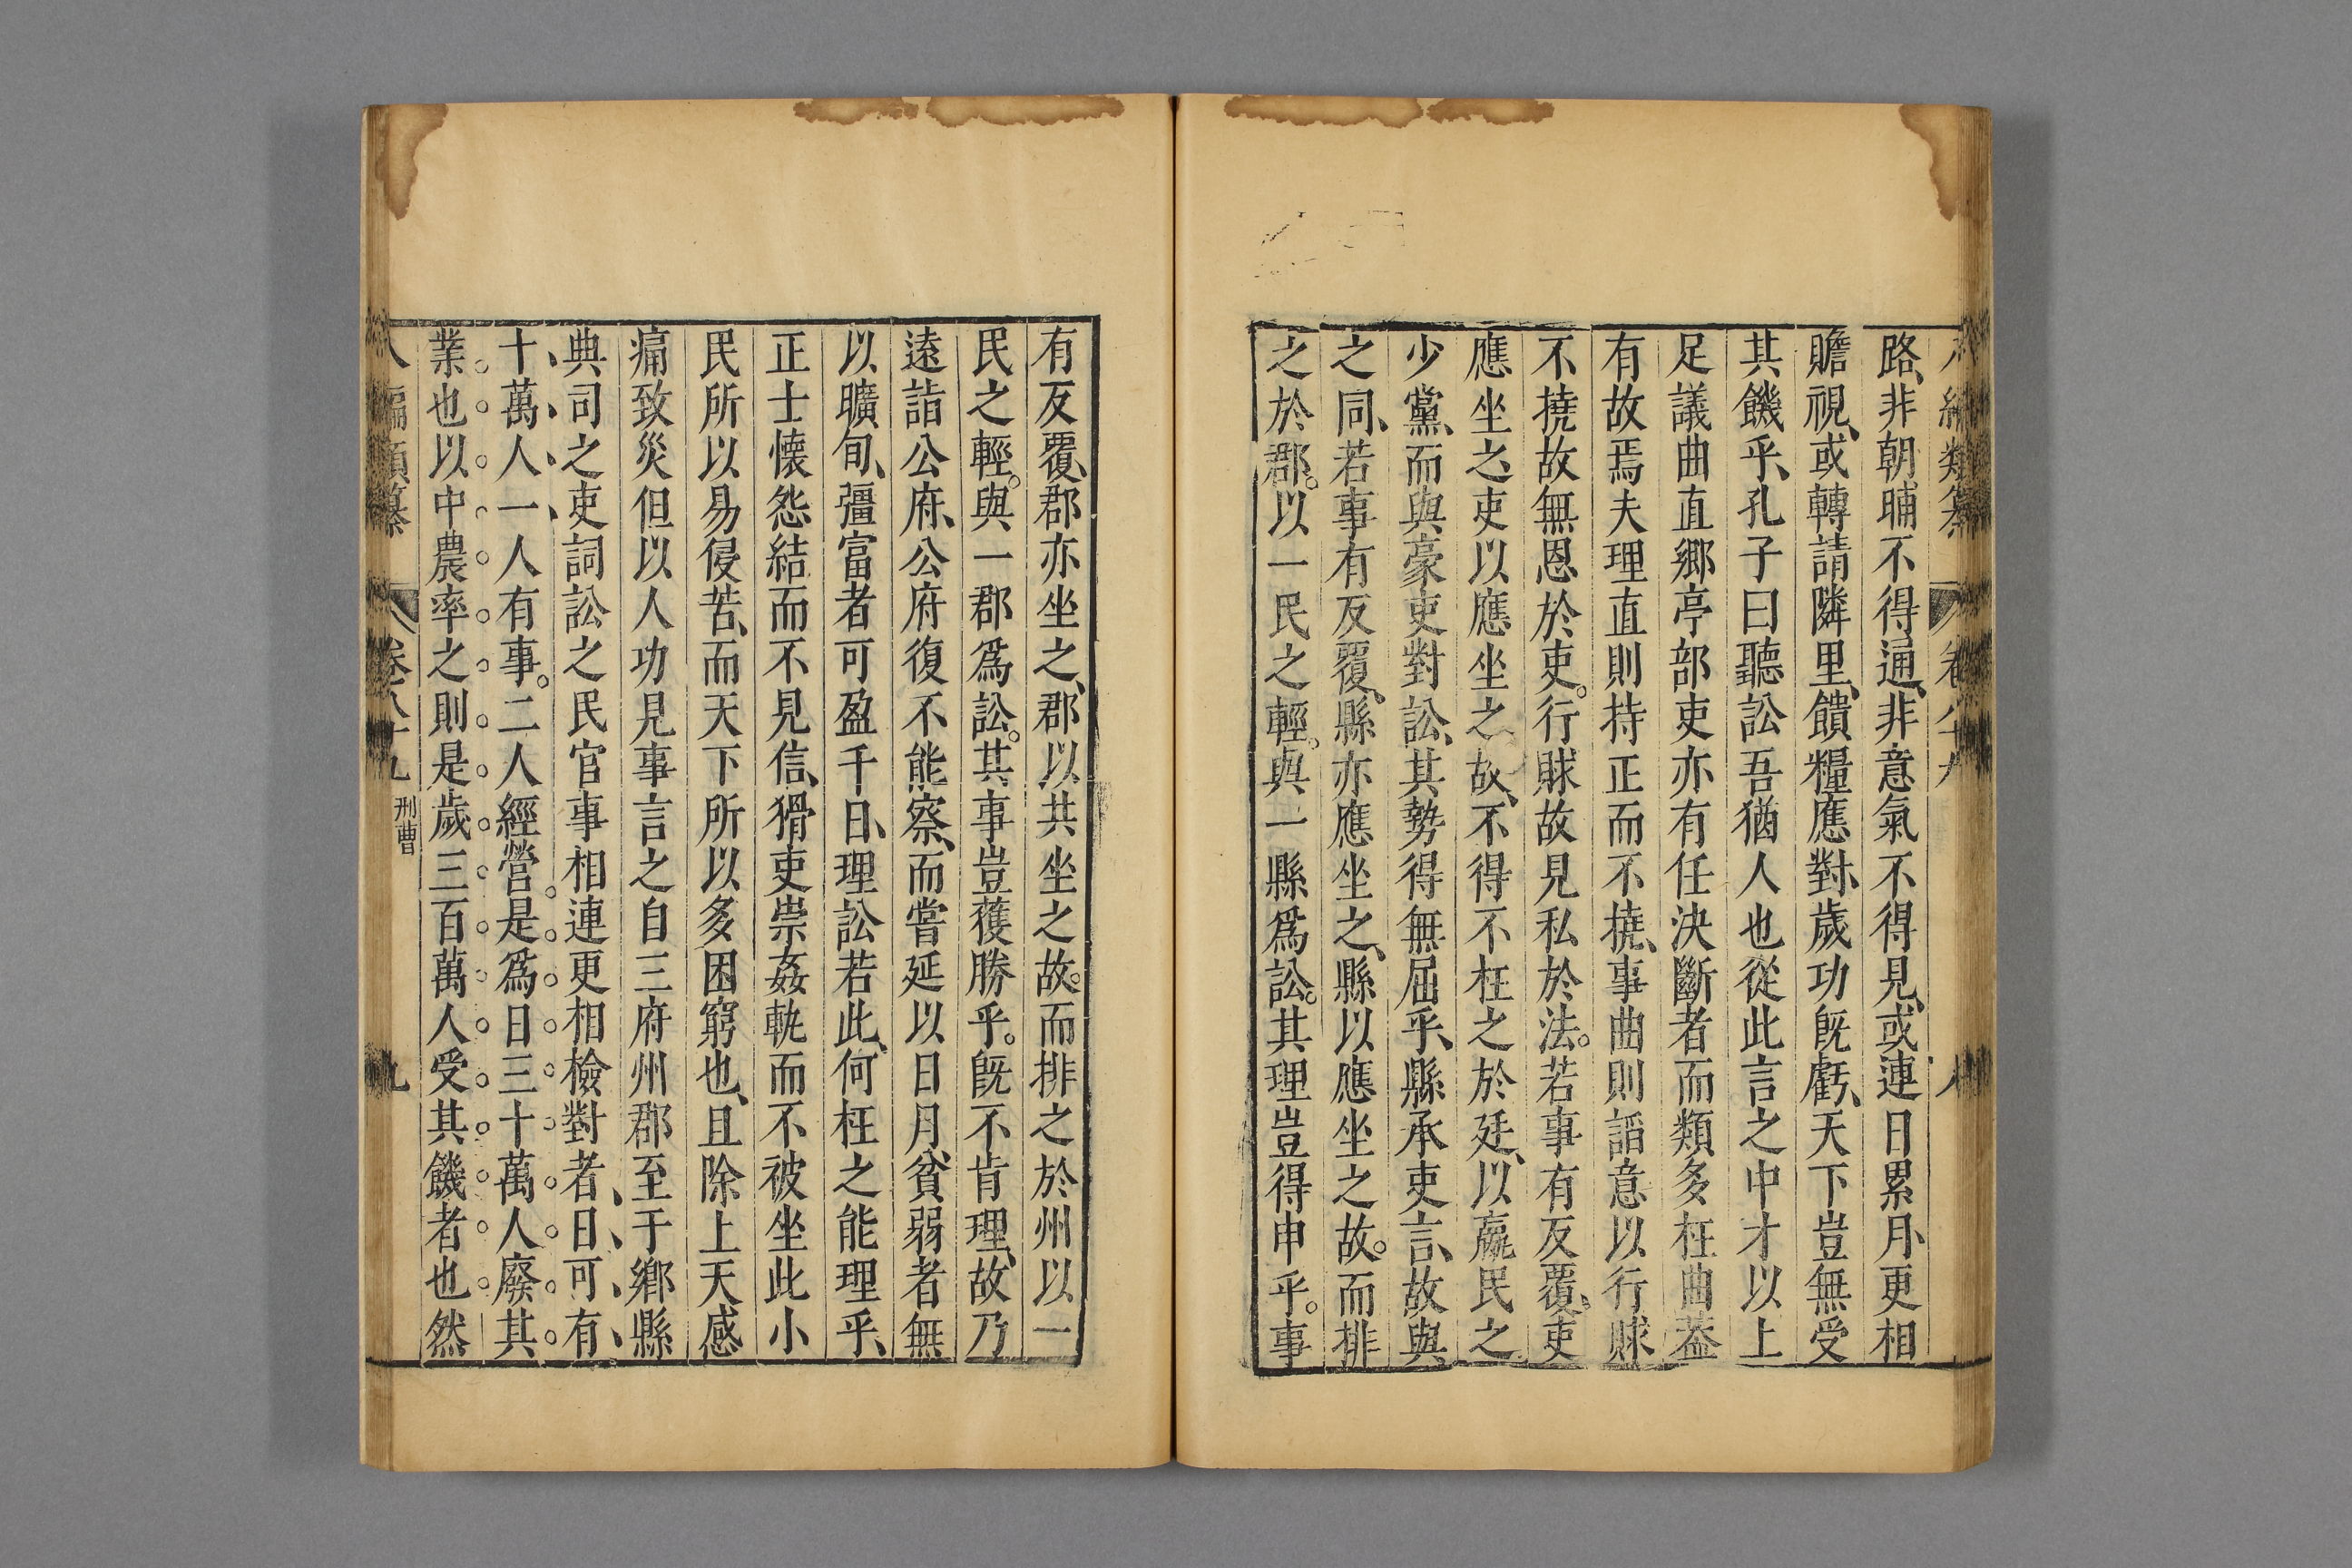 路、非朝晡不得通、非意氣不得見、或連日累月、更相
贍視、或轉請隣里、饋糧應對、歲功旣虧、天下豈無受
其饑乎、孔子曰聽訟吾猶人也從此言之中才以上
足議曲直鄉亭部吏亦有任決斷者而類多枉曲蓋
有故焉夫理直則持正而不撓、事曲則謟意以行賕
不撓故無恩於吏。行賕故見私於法。若事有反覆、吏
應坐之、吏以應坐之故、不得不枉之於廷、以羸民之
少黨、而與豪吏對訟、其勢得無屈乎、縣承吏言、故與
之同、若事有反覆、縣亦應坐之、縣以應坐之故。而排
之於郡。以一民之輕。與一縣爲訟。其理豈得申乎。事
有反覆、郡亦坐之、郡以共坐之故。而排之於州以一
民之輕。與一郡爲訟。其事豈獲勝乎。旣不肯理、故乃
遠詣公府、公府復不能察、而嘗延以日月、貧弱者無
以曠旬、彊富者可盈千日、理訟若此、何枉之能理乎、
正士懷怨結而不見信、猾吏崇姦軌而不被坐此小
民所以易侵苦、而天下所以多困窮也、且除上天感
痛致災但以人功見事言之自三府州郡至于鄉縣
典司之吏詞訟之民官事相連更相檢對者、日可有
十萬人一人有事。二人經營是爲日三十萬人廢其
業也以中農率之則是歲三百萬人受其饑者也然
八編類纂 卷八十九 刑曹 九